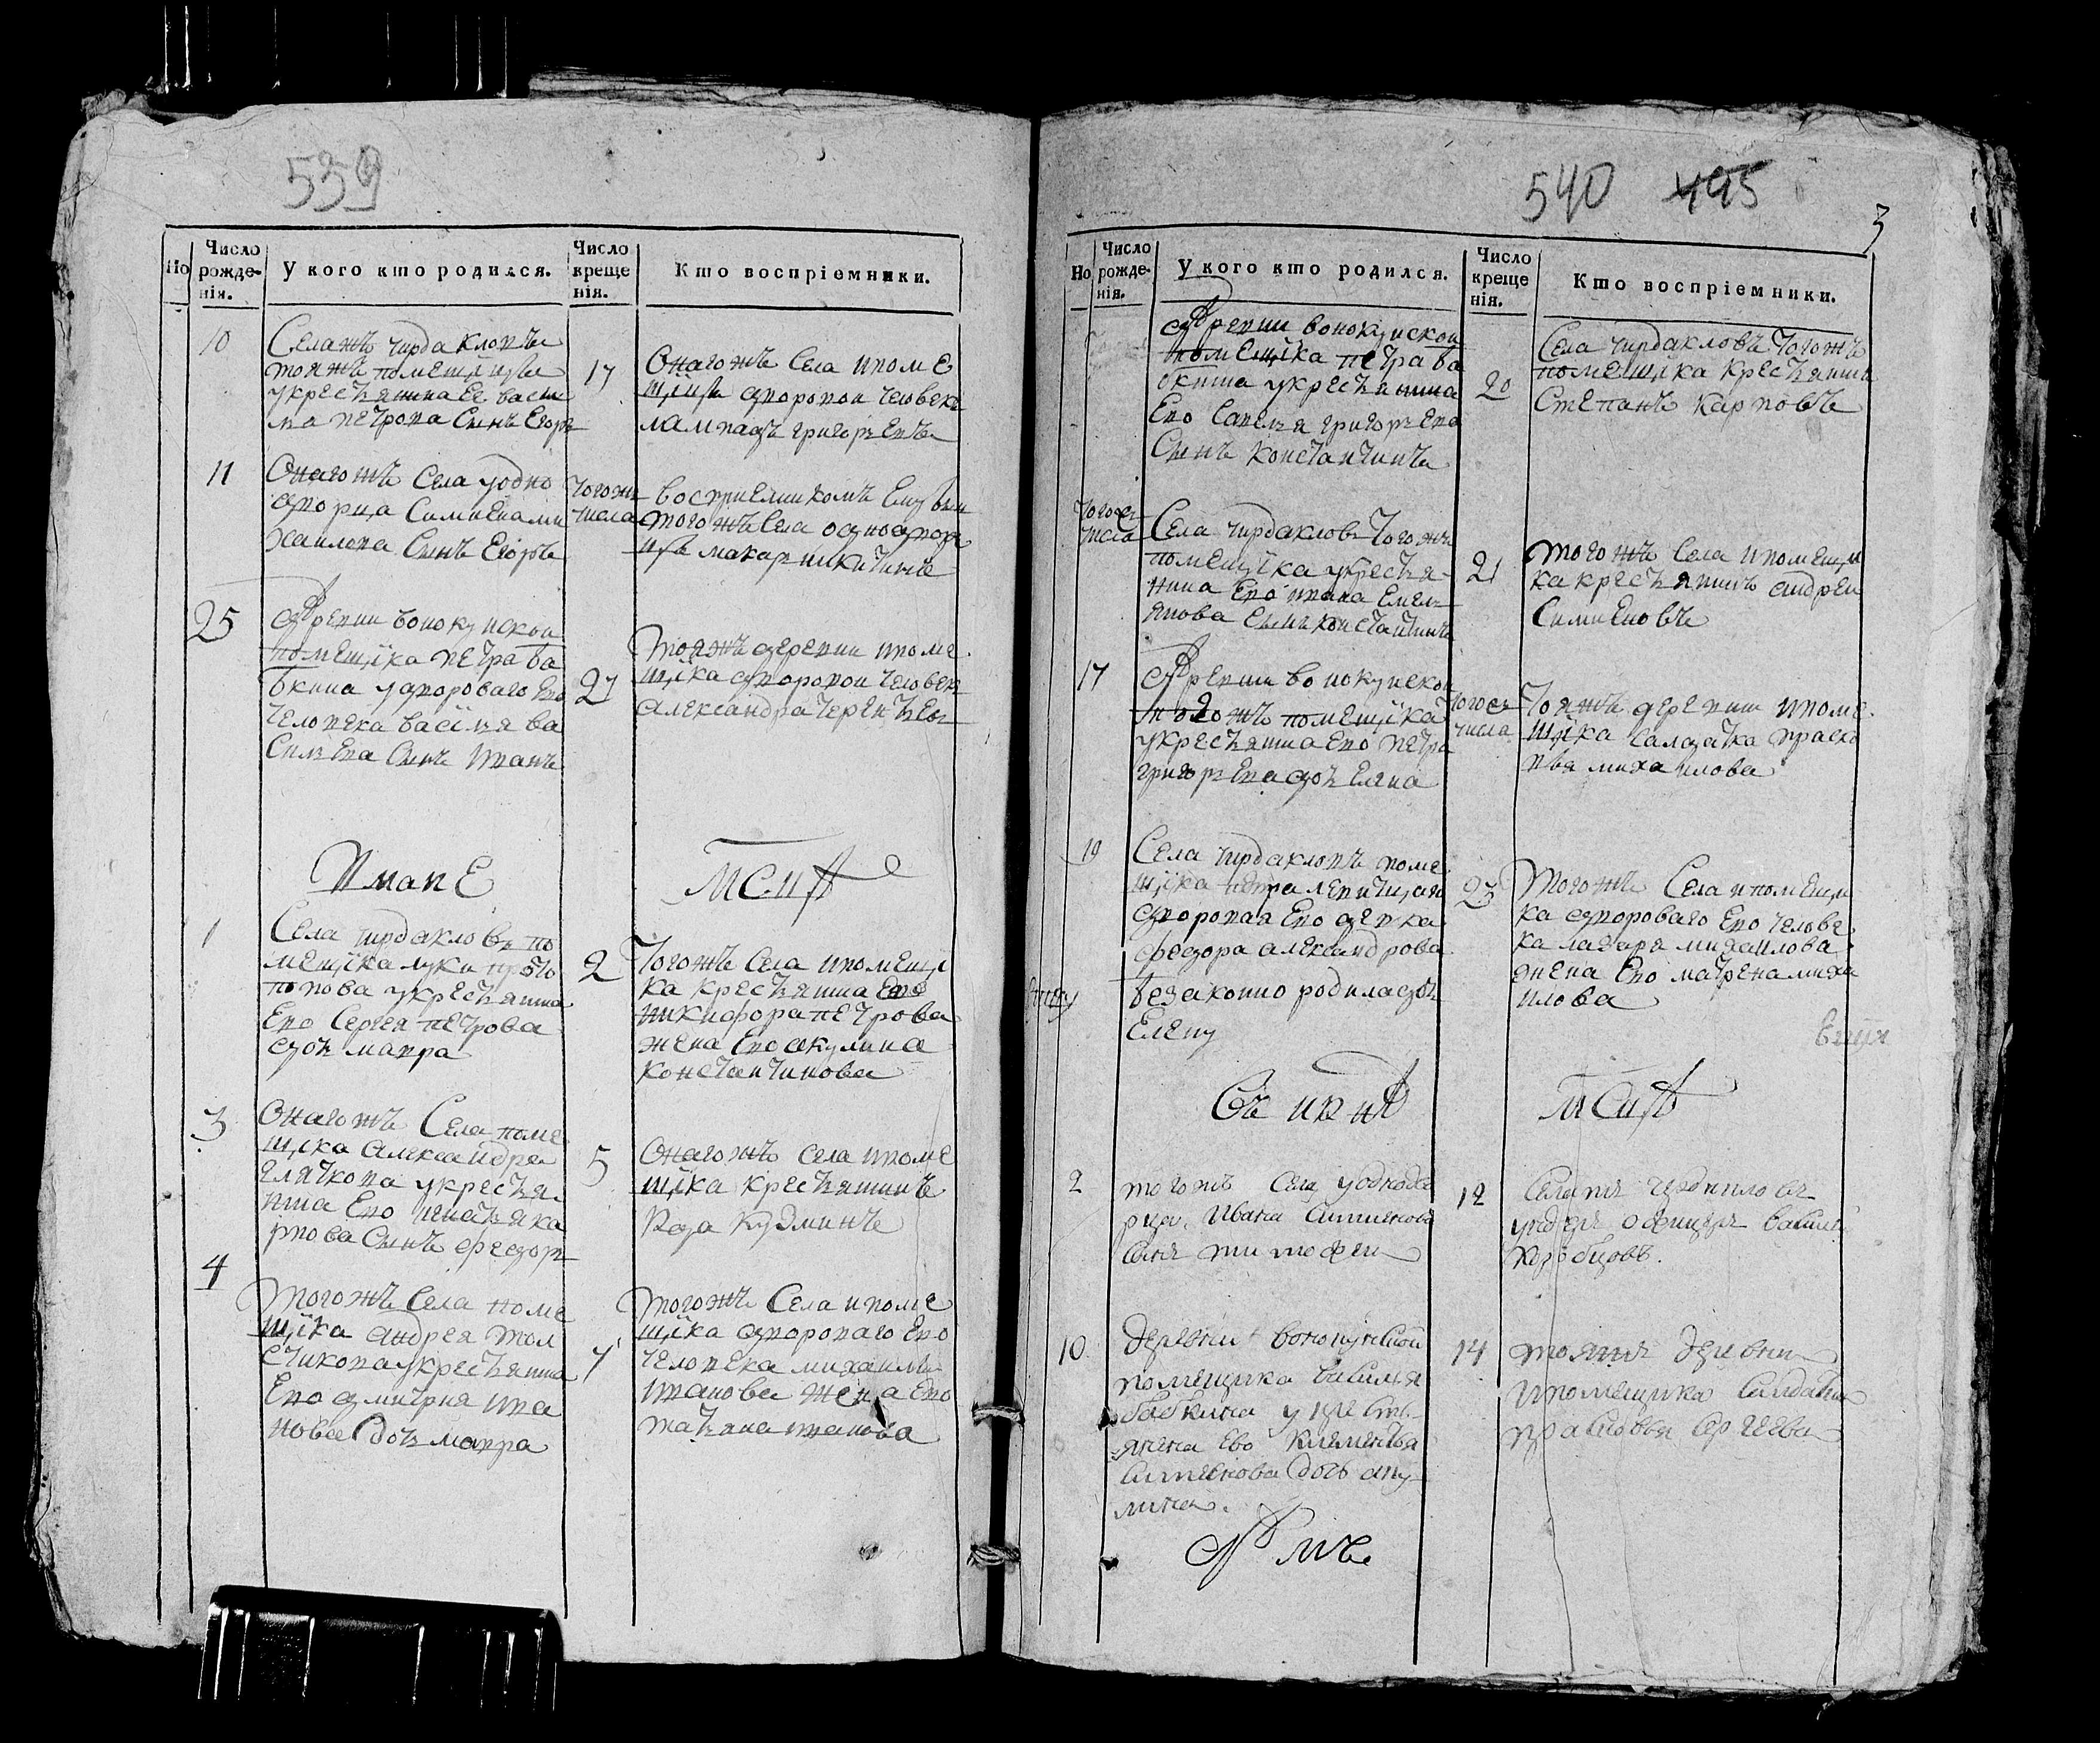 539
Но
Число рожде-нія.
У кого кто родился.
Число креще нія.
Кто воспріемники.
10
Села жъ чирдакловъ
тояжъ помещицы
укрестьянина Ее васи
ля петрова Сынъ Егоръ
17
Онагожъ Села ипоме
щицы дворовои человекъ
лампадъ григорьевъ
11
Онагожъ Села уодно
дворца Симиена ми
хаилова Сынъ Егоръ
тогожъ
числа
восприемникомъ
тогожъ Села однодвор
цъ макар никитинъ
25
деревни вонокуискои
помещика петра ба
бкина удвороваго Ево
человека василя ва
Силева Сынъ иванъ
27
тояжъ деревни ипоме
щика дворовои человекъ
александра терентьевъ
Иване
МСЦА
1
Села чирдакловъ по
мещика луки прото
попова укрестьянина
Ево Сергея петрова
дочь мавра
2
тогожъ Села ипомещи
ка крестьянина Ево
никифора петрова
жена Ево акулина
Константинова
3
Онагожъ Села поме
щика александра
укрестья
нина Ево игнатья ка
рпова Сынъ федоръ
5
Онагожъ села ипоме
щика крестьянинъ
Кузминъ
4
тогожъ Села поме
щика андрея тол
Ечикова укрестьянина
Ево дмитрия ива
нова дочь мавра
7
тогожъ Села ипоме
щика двороваго Ево
человека михаила
иванова жена Ево
татьяна иванова
540 495
3
Но
Число рожде-нія.
У кого кто родился.
Число креще нія.
Кто воспріемники.
деревни вонокуискои
помещика петра ба
бкина укрестьянина
Ево Савелья григорьева
Сынъ Константинъ
20
Села чирдакловъ тогожъ
помещика крестьянинъ
Степанъ карповъ
тогожъ
числа
Села чирдакловъ тогожъ
помещика укрестья-
нина Ево ивана Емель
янова Сынъ константинъ
21
тогожъ Села ипомещи
ка крестьянинъ андреи
Симиеновъ
17
деревни вонокуискои
тогожъ помещика
укрестьянина Ево петра
григорьева дочь Елена
тогожъ
числа
тояжъ деревни ипоме
щика Салдатка праско
вья михаилова
19
Села чирдакловъ поме
щика петра
дворовая Ево девка
федора александрова
безаконно родила дочь
Елену
23
тогожъ Села ипомещи
ка двороваго Ево челове
ка лазаря михаилова
жена Ево матрена миха
илова
МСЦА
2
тогожъ села уоднодво
рца Ивана Симионова
сынъ тимофеи
12
Села чердакловъ
ундеръ офицеръ василей
Коробцовъ.
10
деревни вонокуиской
помещика василья
бабкина укресть-
янина Ево Климентья
Симионова дочь аку-
лина.
14
тояжъ деревни
ипомещика салдатка
прасковья сергеева